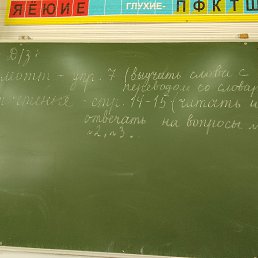 ЯЁЮИЕ ГЛУХИЕ- ПФКТШ
Д/з:
мотн - упр. 7 (выучить слова с
переводом со словар
чтение - стр. 14-15 (читать и
отвечать на вопросы
№2, №3.